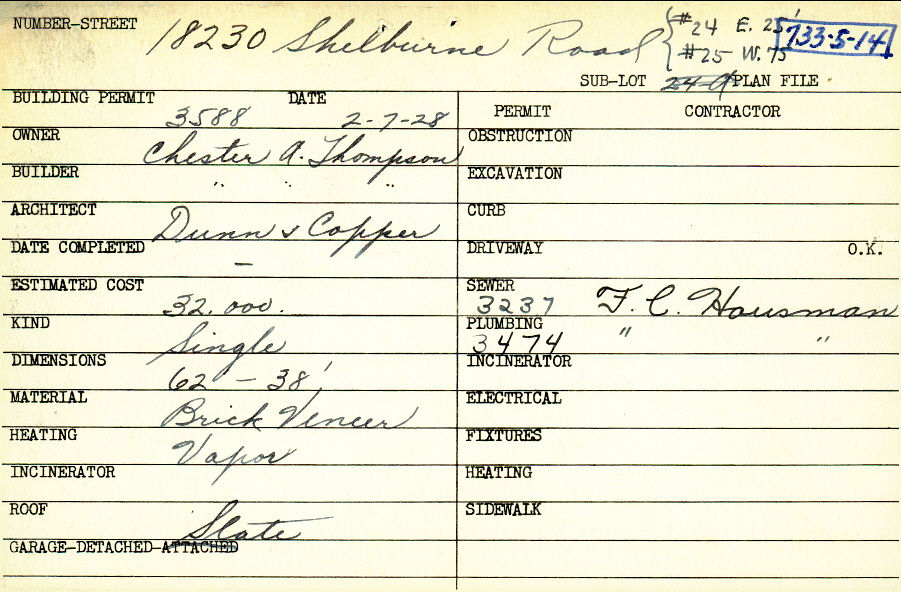 NUMBER-STREET 18230 Shelburne Road { #24 E. 25' 733-5-14
#25 W. 75'
SUB-LOT 24-A PLAN FILE
BUILDING PERMIT 3588 DATE 2-7-28
PERMIT CONTRACTOR
OWNER Chester A. Thompson
OBSTRUCTION
BUILDER " " "
EXCAVATION
ARCHITECT Dunn & Copper
CURB
DATE COMPLETED —
DRIVEWAY O.K.
ESTIMATED COST 32,000.
SEWER 3237 F. C. Hausman
KIND Single
PLUMBING 3474 " "
DIMENSIONS 62' - 38'
INCINERATOR
MATERIAL Brick Veneer
ELECTRICAL
HEATING Vapor
FIXTURES
INCINERATOR
HEATING
ROOF Slate
SIDEWALK
GARAGE-DETACHED-ATTACHED